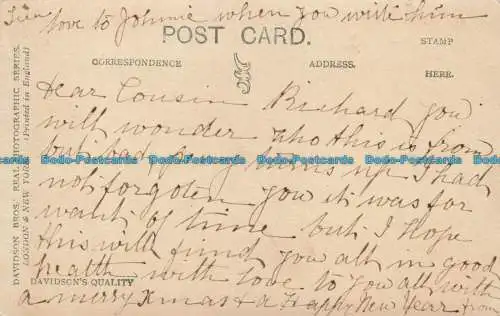 love to Johnnie when you write him
POST CARD.
CORRESPONDENCE
ADDRESS.
STAMP
HERE.
Dear Cousin Richard you
will wonder who this is from
but bad penny turns up I had
not forgoten you it was for
want of time but I Hope
this will find you all in good
health with love to you all with
a merry Xmas & a Happy New Year from
DAVIDSON BROS. REAL PHOTOGRAPHIC SERIES.
LONDON & NEW YORK (Printed in England)
DAVIDSON'S QUALITY
Bodo-Postcards Bodo-Postcards Bodo-Postcards Bodo-Postcards Bodo-Postcards